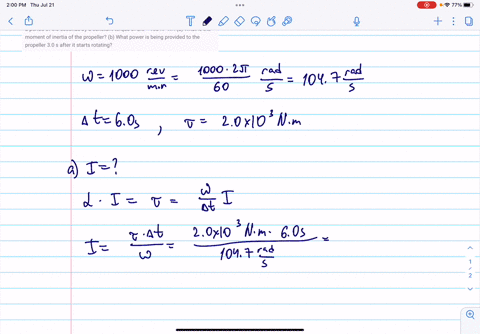 2:00 PM Thu Jul 21
77%
moment of inertia of the propeller? (b) What power is being provided to the
propeller 3.0 s after it starts rotating?
ω = 1000 rev/min = 1000·2π/60 rad/s = 104.7 rad/s
Δt = 6.0s , τ = 2.0×10³ N.m
a) I = ?
α · I = τ = ω/Δt I
I = τ·Δt/ω = 2.0×10³ N.m · 6.0s / 104.7 rad/s =
1
2